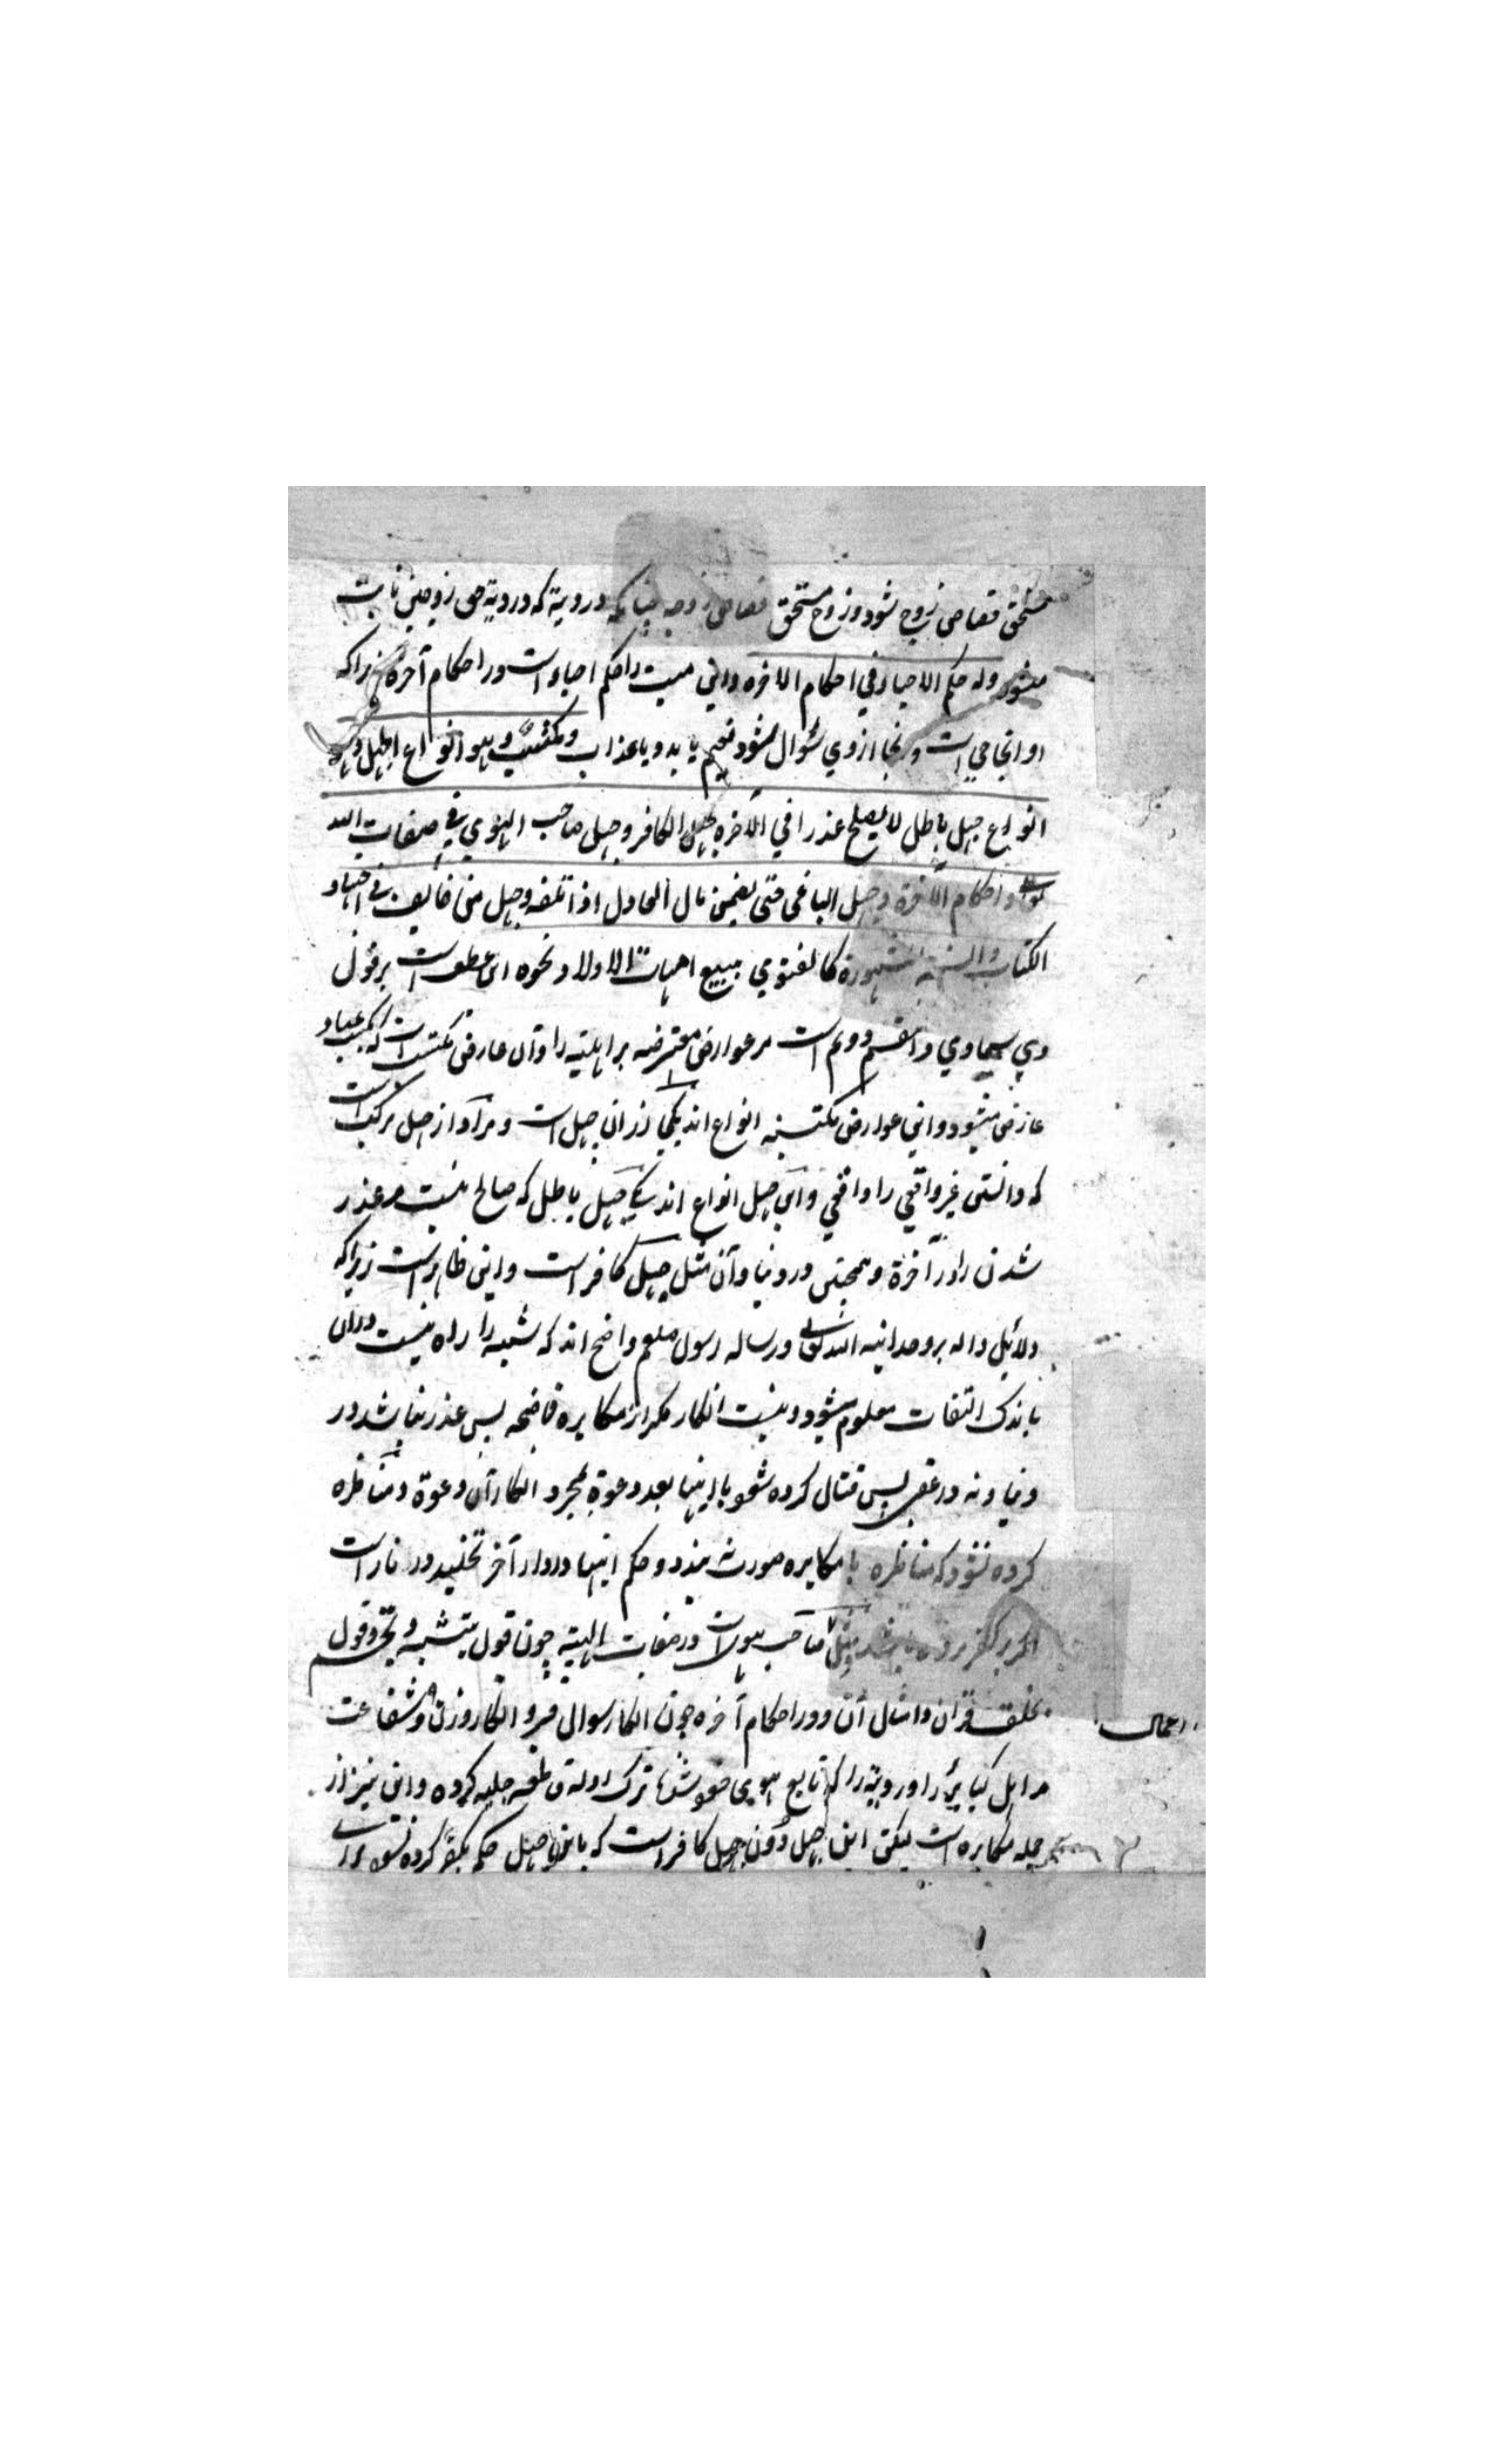 مستحق قصاص زوج شود و زوج مستحق قصاص زوجه چنانکه در دیة که در دیة حق زوجین ثابت
میشود وله حکم الاحیاء فی احکام الاخرة واین میت را حکم احیاء است در احکام آخرة زیراکه
او انجا حی است و انجا از وی سئوال شود نعیم یابد و یا عذاب ومکتسب وهو انواع الجهل وهو
انواع جهل باطل لا یصلح عذرا فی الآخرة کجهل الکافر وجهل صاحب الهوی فی صفات الله
تعالی واحکام الآخرة وجهل الباغی حتی یضمن مال العادل اذا اتلفه وجهل من خالف فی اجتهاد
الکتاب والسنة المشهورة کالفتوی ببیع امهات الاولاد ونحوه این عطف است بر قول
وی سماوی واین قسم دوم است مر عوارض معترضه بر اهلیته را وآن عارض مکتسب است که بکسب عباد
عارض میشود واین عوارض مکتسبه انواع اند یکی ازان جهل است ومراد از جهل مرکب است
که دانستن غیر واقعی را واقعی واین جهل انواع اند یکی جهل باطل که صالح نیست مر عذر
شدن را در آخرة وهمچنین در دنیا وآن مثل جهل کافر است واین ظاهر است زیراکه
دلائل داله بر وحدانیه الله تعالی ورساله رسول صلعم واضح اند که شبهه را راه نیست دران
باندک التفات معلوم میشود ونیست انکار مگر از مکابره فاضحه پس عذر نباشد در
دنیا ونه در عقبی پس قتال کرده شود با اینها بعد دعوة بمجرد انکار آن دعوة ومناظره
کرده نشود که مناظره با مکابره صورت نبندد وحکم اینها در دار آخر تخلید در نار است
اگر بر کفر مرده باشد ومثل صاحب هوا است در صفات الهیته چون قول بتشبیه وتجسم وقول
بخلق قرآن وامثال آن ودر احکام آخره چون انکار سوال قبر وانکار وزن وشفاعت
اعمال
مر اهل کبائر را ورویة را که تابع هوی خود شد ترک ادله قاطعه جلیه کرده واین نیز از
جمله مکابره است لیکن این جهل دون جهل کافر است که باین جهل حکم بکفر کرده نشود برای